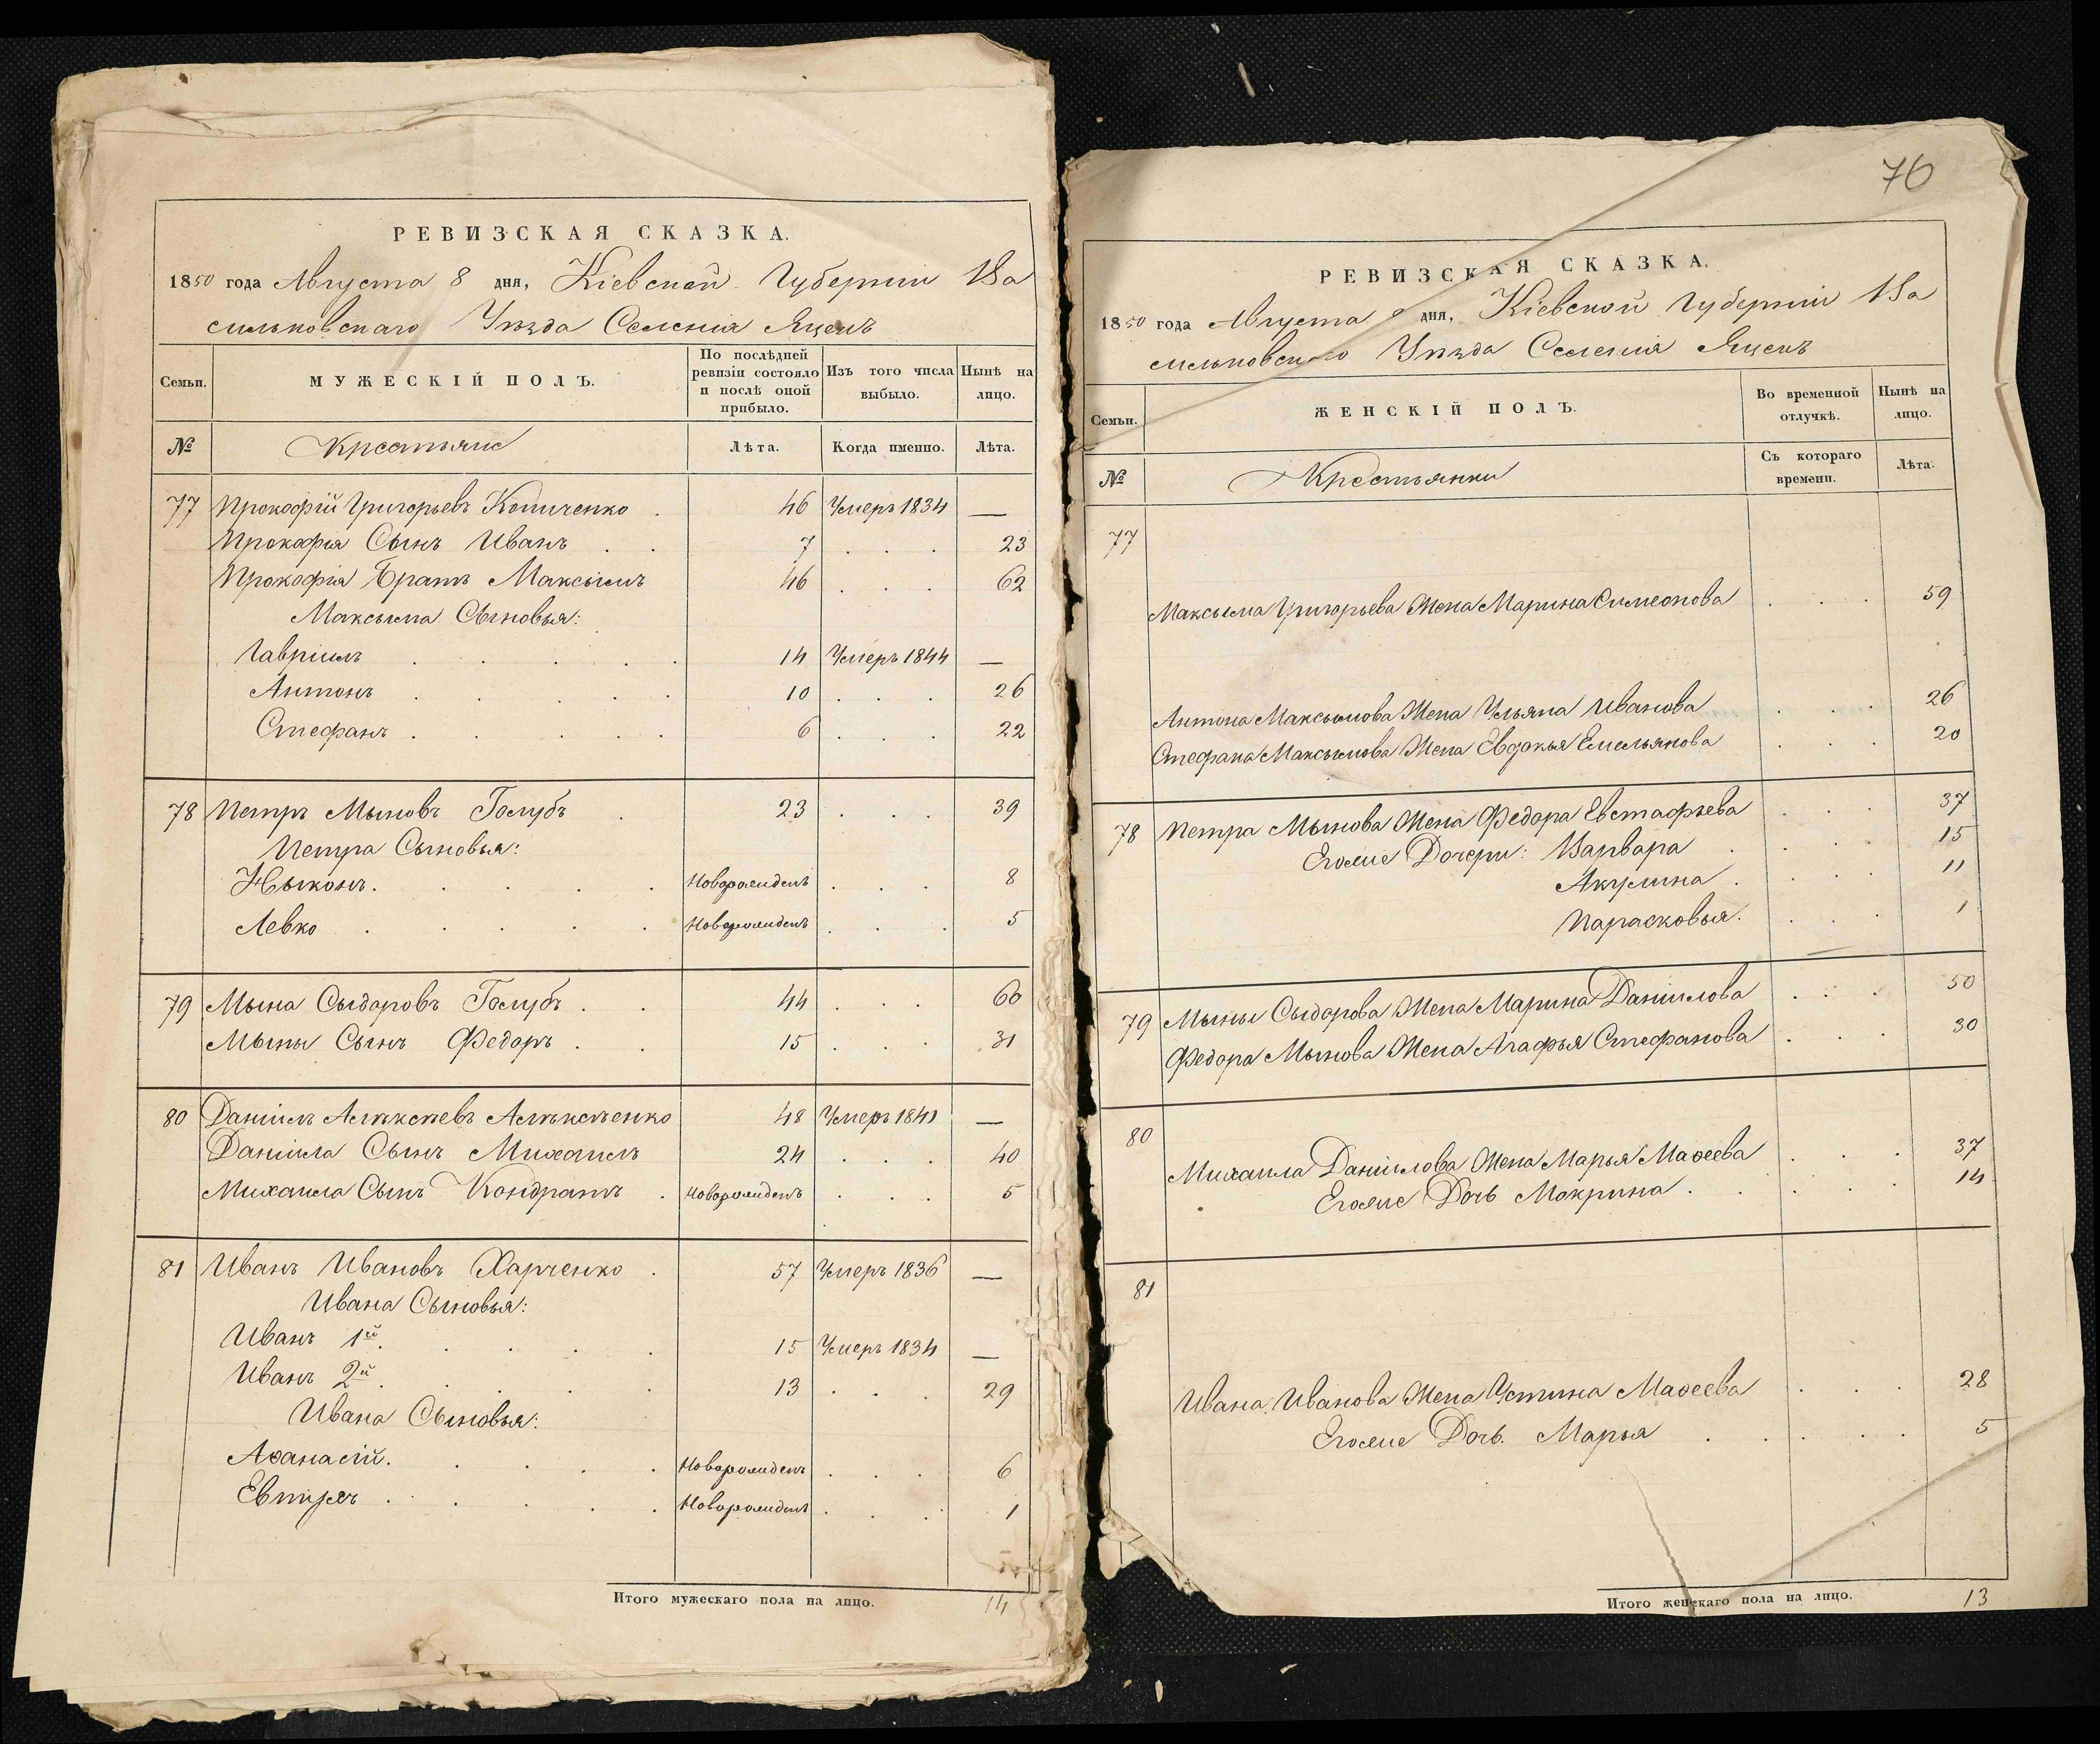 РЕВИЗСКАЯ СКАЗКА.
1850 года Августа 8 дня, Кіевской Губерніи Ва
сильковскаго Уѣзда Селенія Яцекъ
Семьи. МУЖЕСКІЙ ПОЛЪ. По послѣдней ревизіи состояло и послѣ оной прибыло. Изъ того числа выбыло. Нынѣ на лицо.
№ Крестьяне Лѣта. Когда именно. Лѣта.
77 Прокофій Григорьевъ Копиченко . 46 Умеръ 1834 —
Прокофія Сынъ Иванъ . . 7 . . . 23
Прокофія Братъ Максымъ 46 . . . 62
Максыма Сыновья:
Гавріилъ . . . . . 14 Умеръ 1844 —
Антонъ . . . . 10 . . . 26
Стефанъ . . . . . 6 . . . 22
78 Петръ Мыновъ Голубъ . 23 . . . 39
Петра Сыновья:
Ныконъ. . . . . Новорожденъ . . . 8
Левко . . . . . Новорожденъ . . . 5
79 Мына Сыдоровъ Голубъ . . 44 . . . 60
Мыны Сынъ Федоръ . . 15 . . . 31
80 Даніилъ Алѣксѣевъ Алѣксѣенко 48 Умеръ 1841 —
Даніила Сынъ Михаилъ 24 . . . 40
Михаила Сынъ Кондратъ . Новорожденъ . . . 5
81 Иванъ Ивановъ Харченко . 57 Умеръ 1836 —
Ивана Сыновья:
Иванъ 1й. . . . . 15 Умеръ 1834 —
Иванъ 2й. . . . . 13 . . . 29
Ивана Сыновья:
Аѳанасій. . . . . Новорожденъ . . . 6
Евтіхъ . . . . . Новорожденъ . . . 1
Итого мужескаго пола на лицо. 14
76
РЕВИЗСКАЯ СКАЗКА.
1850 года Августа 8 дня, Кіевской Губерніи Ва
сильковскаго Уѣзда Селенія Яцекъ
Семьи. ЖЕНСКІЙ ПОЛЪ. Во временной отлучкѣ. Нынѣ на лицо.
№ Крестьянки Съ котораго времени. Лѣта.
77
Максыма Григорьева Жена Марина Симеонова . . . 59
Антона Максымова Жена Ульяна Иванова . . . 26
Стефана Максымова Жена Евдокья Емельянова . . . 20
78 Петра Мынова Жена Федора Евстафьева . . . 37
Егоже Дочери: Варвара . . . . 15
Акулина . . . . 11
Парасковья. . . . 1
79 Мыны Сыдорова Жена Марина Данилова . . . 50
Федора Мынова Жена Агафья Стефанова . . . 30
80
Михаила Даніилова Жена Марья Маѳеева . . . 37
Егоже Дочь Мокрина . . . . . 14
81
Ивана Иванова Жена Устина Маѳеева . . . 28
Егоже Дочь. Марья . . . . . 5
Итого женскаго пола на лицо. 13